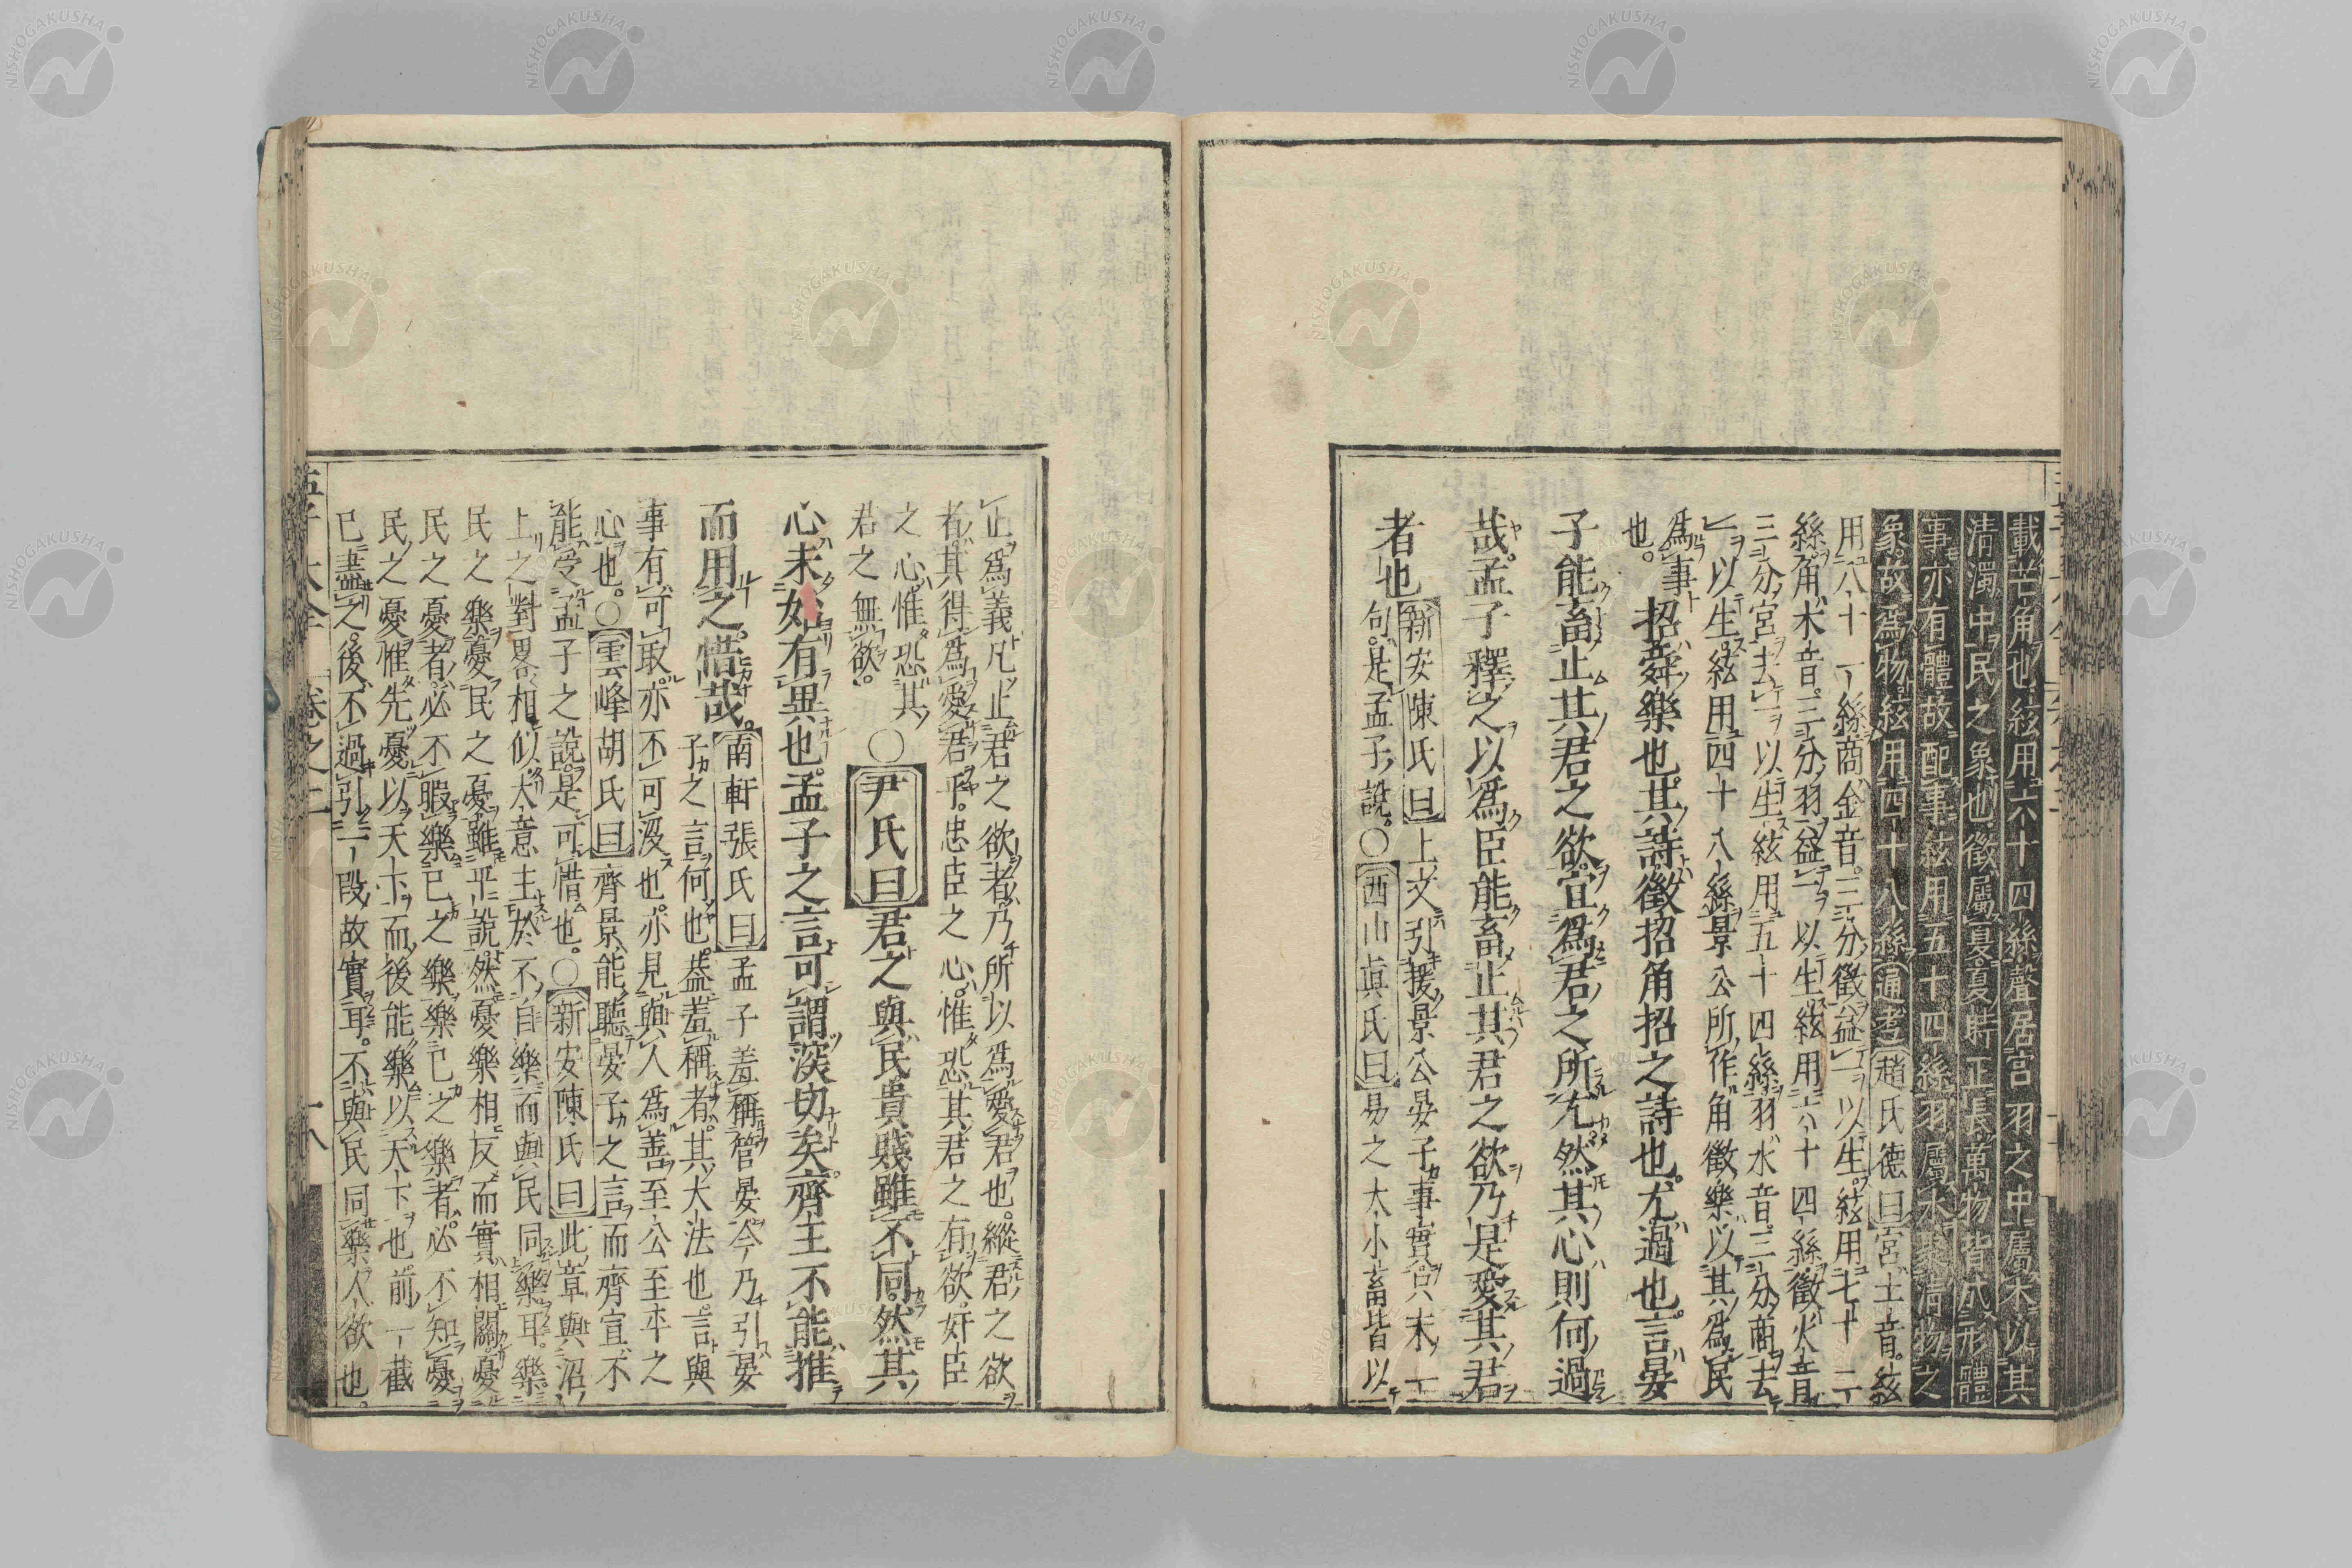 載芒角也絃用六十四絲聲居宮羽之中屬木以其
清濁中民之象也徵屬夏夏時正長萬物皆成形體
事亦有體故配事絃用五十四絲羽屬水聚清物之
象故爲物絃用四十八絲通考趙氏德曰宮土音絃
用八十一絲商金音三分徵益一以生絃用七十二
絲角木音三分羽益一以生絃用六十四絲徵火音
三分宮去一以生絃用五十四絲羽水音三分商去
一以生絃用四十八絲景公所作角徵樂以其爲民
爲事也。招舜樂也其詩徵招角招之詩也尤過也言晏
子能畜止其君之欲宜爲君之所尤然其心則何過
哉孟子釋之以爲臣能畜止其君之欲乃是愛其君
者也新安陳氏曰上文引援景公晏子事實只末一
句是孟子說○西山眞氏曰易之大小畜皆以
止爲義凡止君之欲者乃所以爲愛君也縱君之欲
者其得爲愛君乎忠臣之心惟恐其君之有欲奸臣
之心惟恐其君之無欲○尹氏曰君之與民貴賤雖不同然其
心未始有異也孟子之言可謂深切矣齊王不能推
而用之惜哉南軒張氏曰孟子羞稱管晏今乃引晏
子之言何也蓋羞稱者其大法也言與
事有可取亦不可沒也亦見與人爲善至公至平之
心也○雲峰胡氏曰齊景能聽晏子之言而齊宣不
能受孟子之說是可惜也○新安陳氏曰此章與沼
上之對畧相似大意主於不自樂而與民同樂耳樂
民之樂憂民之憂雖平說然憂樂相反而實相關憂
民之憂者必不暇樂己之樂樂己之樂者必不知憂
民之憂惟先憂以天下而後能樂以天下也前一截
已盡之後不過引一段故實耳不與民同樂人欲也
孟子大全
卷之二
十八
NISHOGAKUSHA